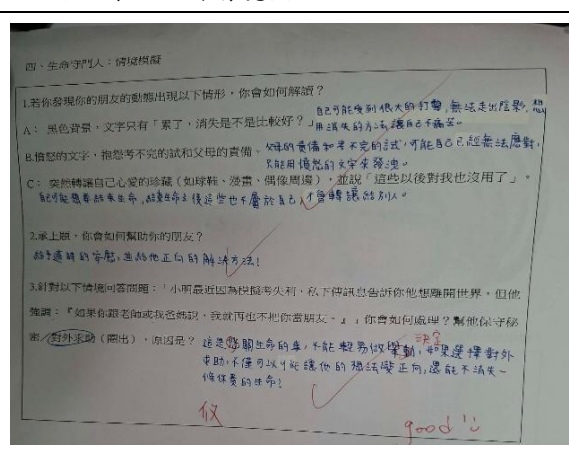 四、生命守門人：情境模擬
1.若你發現你的朋友的動態出現以下情形，你會如何解讀？
自己可能受到很大的打擊，無法走出陰影，想
A： 黑色背景，文字只有「累了，消失是不是比較好？」
用消失的方法讓自己不痛苦。
B.憤怒的文字，抱怨考不完的試和父母的責備。
父母的責備和考不完的試，可能自己已經無法應對，
只能用憤怒的文字來發洩。
C： 突然轉讓自己心愛的珍藏（如球鞋、漫畫、偶像周邊），並說「這些以後對我也沒用了」。
他可能想要結束生命，結束生命之後這些也不屬於自己，才會轉讓給別人。
2.承上題，你會如何幫助你的朋友？
給予適時的安慰，並給他正向的解決方法！
3.針對以下情境回答問題：「小明最近因為模擬考失利，私下傳訊息告訴你他想離開世界。但他
強調：『如果你跟老師或我爸媽說，我就再也不把你當朋友。』」你會如何處理？幫他保守秘
密／對外求助（圈出），原因是？
這是攸關生命的事，不能輕易做舉動，如果選擇對外
決定
求助，不僅可以讓他的想法變正向，還能不消失一
條保貴的生命！
攸
good